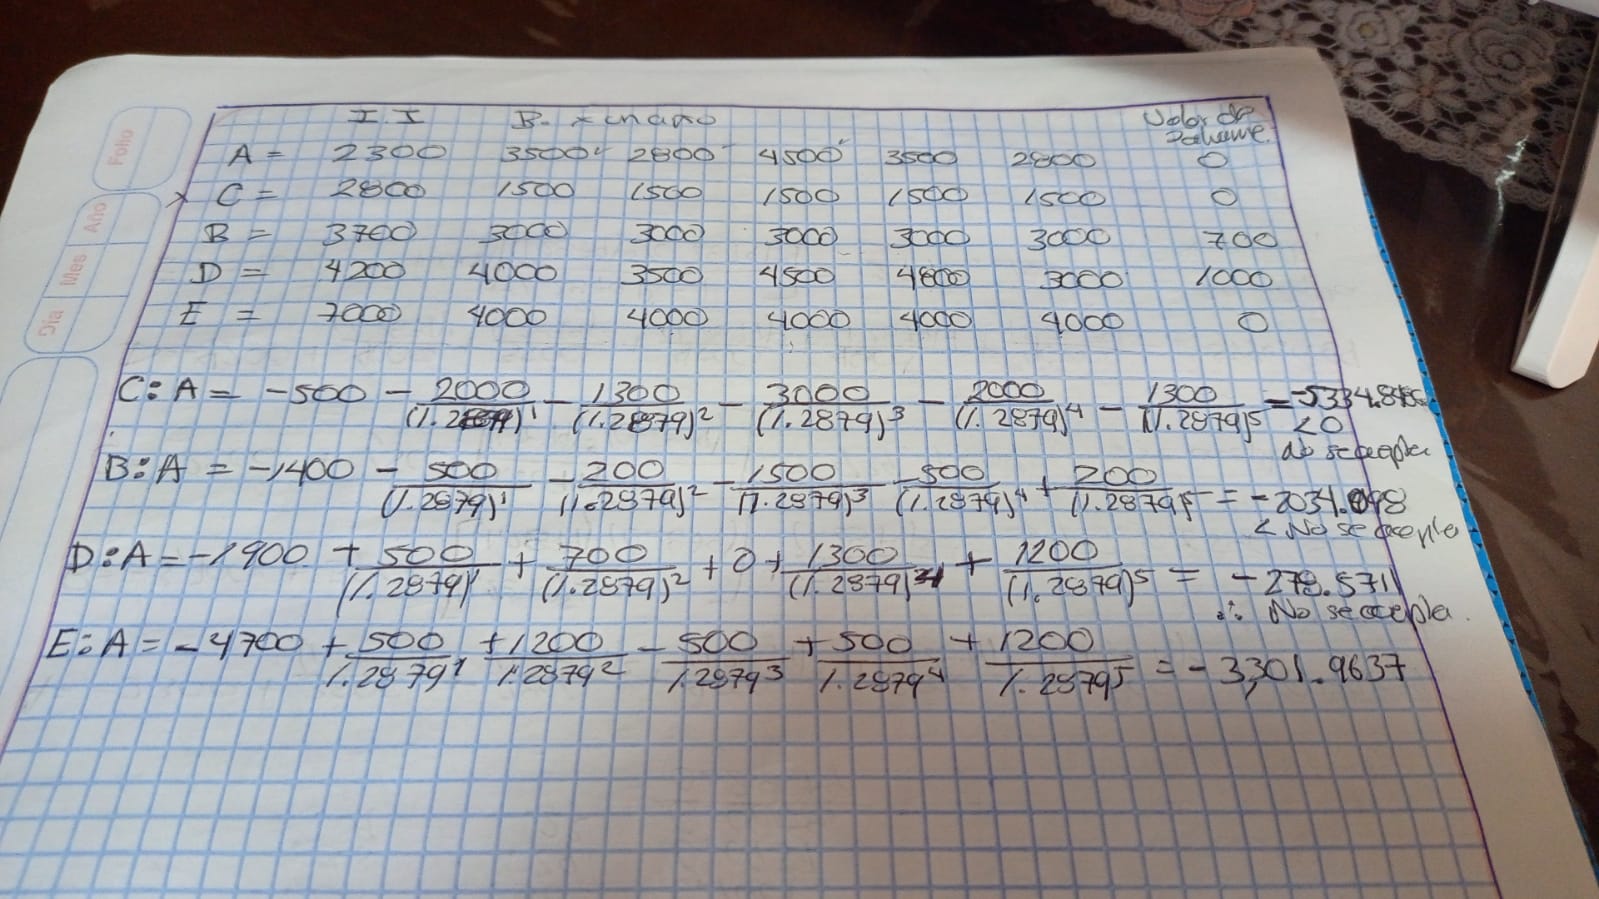 Folio
Día Mes Año
I.I B. x cn año Valor de
A = 2300 3500 2800 4500 3500 2800 0
x C = 2800 1500 1500 1500 1500 1500 0
B = 3700 3000 3000 3000 3000 3000 700
D = 4200 4000 3500 4500 4800 3000 1000
E = 7000 4000 4000 4000 4000 4000 0
C:A = -500 - 2000/(1.2879)^1 - 1300/(1.2879)^2 - 3000/(1.2879)^3 - 2000/(1.2879)^4 - 1300/(1.2879)^5 =
<0
No se acepta
B:A = -1400 - 500/(1.2879)^1 - 200/(1.2879)^2 - 1500/(1.2879)^3 - 500/(1.2879)^4 + 200/(1.2879)^5 = -2034.098
< No se acepta
D:A = -1900 + 500/(1.2879)^1 + 700/(1.2879)^2 + 0 + 1300/(1.2879)^4 + 1200/(1.2879)^5 = -278.571
∴ No se acepta.
E:A = -4700 + 500/1.2879^1 + 1200/1.2879^2 - 500/1.2879^3 + 500/1.2879^4 + 1200/1.2879^5 = -3,301.9637